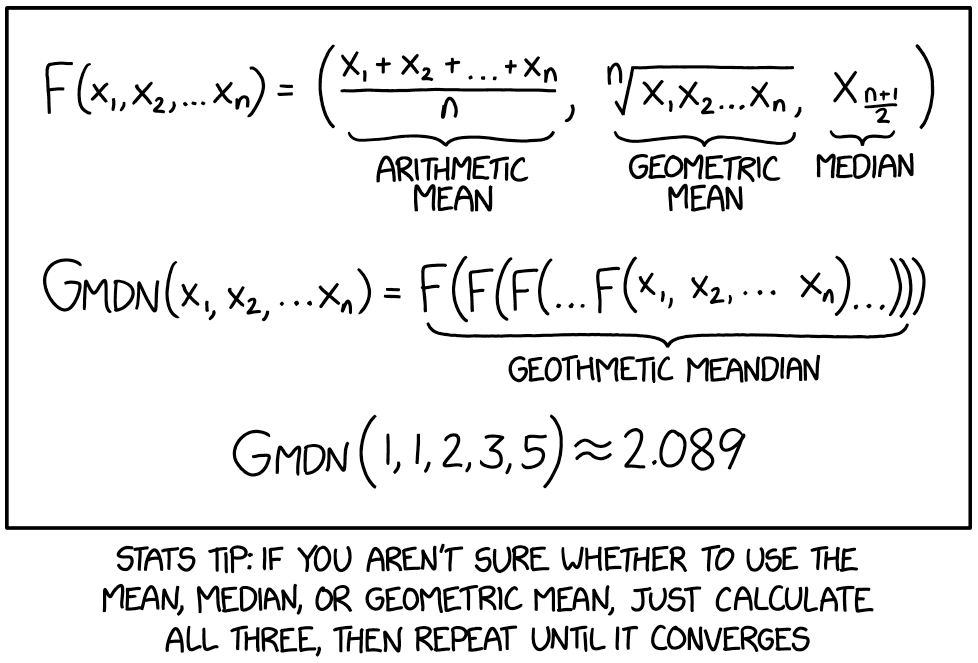 F(x₁, x₂, ... xₙ) = ( (x₁ + x₂ + ... + xₙ)/n , ⁿ√(x₁x₂...xₙ), x_((n+1)/2) )
ARITHMETIC MEAN
GEOMETRIC MEAN
MEDIAN
GMDN(x₁, x₂, ... xₙ) = F(F(F(... F(x₁, x₂, ... xₙ)...)))
GEOTHMETIC MEANDIAN
GMDN(1, 1, 2, 3, 5) ≈ 2.089
STATS TIP: IF YOU AREN'T SURE WHETHER TO USE THE
MEAN, MEDIAN, OR GEOMETRIC MEAN, JUST CALCULATE
ALL THREE, THEN REPEAT UNTIL IT CONVERGES